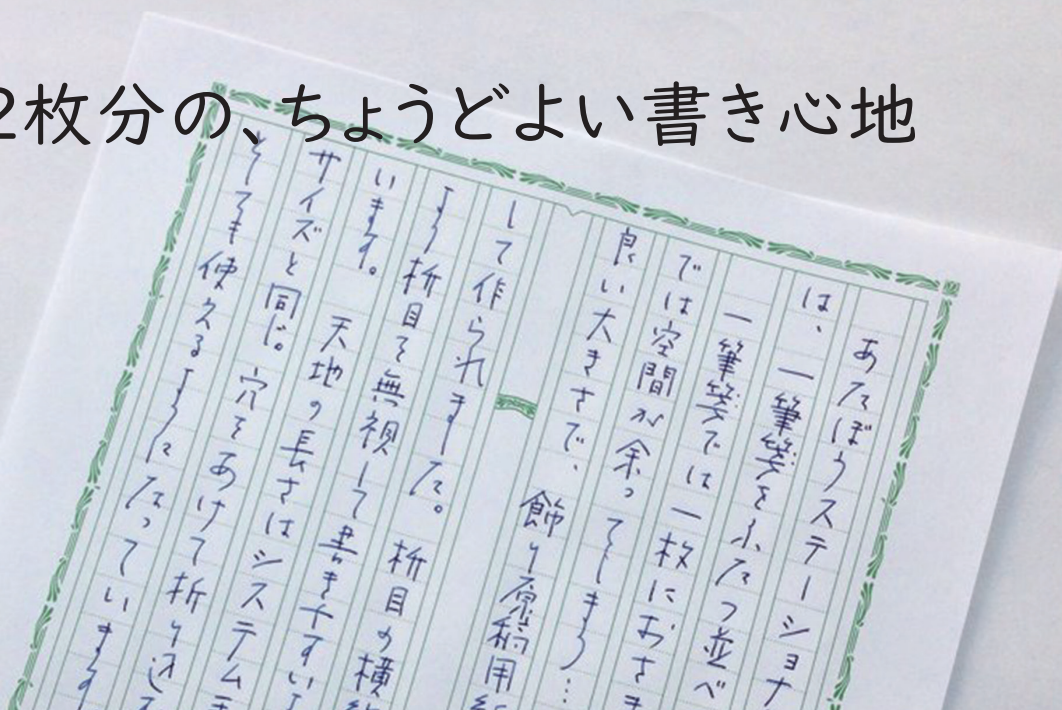 2枚分の、ちょうどよい書き心地
あたぼうステーショナ
は、一筆箋をふたつ並べ
一筆箋では一枚におさま
では空間が余ってしまう…
良い大きさで、飾り原稿用紙
して作られました。枡目の横
よう枡目を無視して書きやすい
います。天地の長さはシステム手
サイズと同じ。穴をあけて折り込
とても使えるようになっています